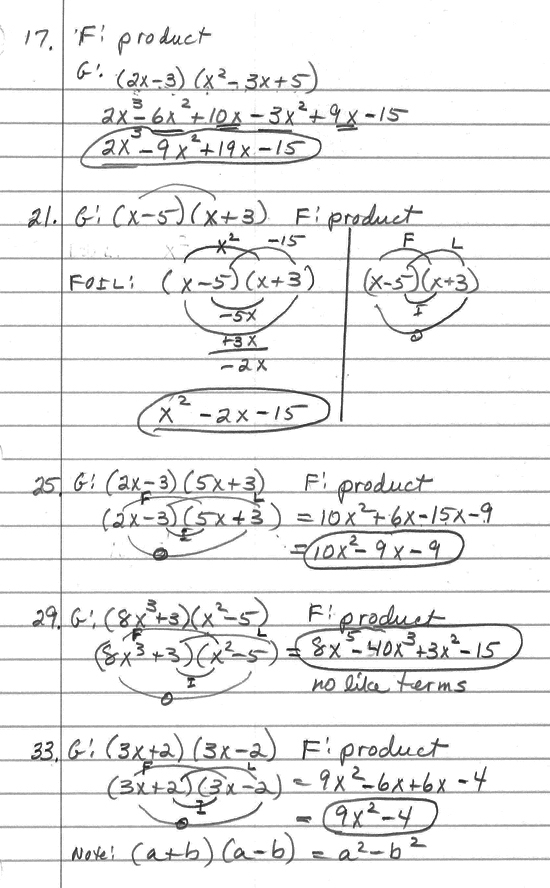 17. F: product
G: (2x-3)(x²-3x+5)
2x³-6x²+10x-3x²+9x-15
2x³-9x²+19x-15
21. G: (x-5)(x+3) F: product
x² -15 F L
FOIL: (x-5)(x+3) (x-5)(x+3)
-5x I
+3x O
-2x
x²-2x-15
25. G: (2x-3)(5x+3) F: product
F L
(2x-3)(5x+3) = 10x²+6x-15x-9
I
O = 10x²-9x-9
29. G: (8x³+3)(x²-5) F: product
F L
(8x³+3)(x²-5) = 8x⁵-40x³+3x²-15
I
O no like terms
33. G: (3x+2)(3x-2) F: product
F L
(3x+2)(3x-2) = 9x²-6x+6x-4
I
O = 9x²-4
Note: (a+b)(a-b) = a²-b²